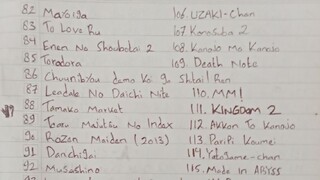 82 Mayoiga
83 To Love Ru
84 Enen No Shouboutai 2
85 Toradora
86 Chuunibyou demo Ko ga Shtai! Ren
87 Leadale No Daichi Nite
88 Tamako Market
89 Toaru Majutsu No Index
90 Rozen Maiden (2013)
91 Danchigai
92 Musashino
106 UZAKI-Chan
107 Konosuba 2
108 Kanojo Mo Kanojo
109 Death Note
110. MM!
111. KINGDOM 2
112. Akkun To Kanojo
113. Paripi Koumei
114. Yatogame-chan
115. Made In Abyss